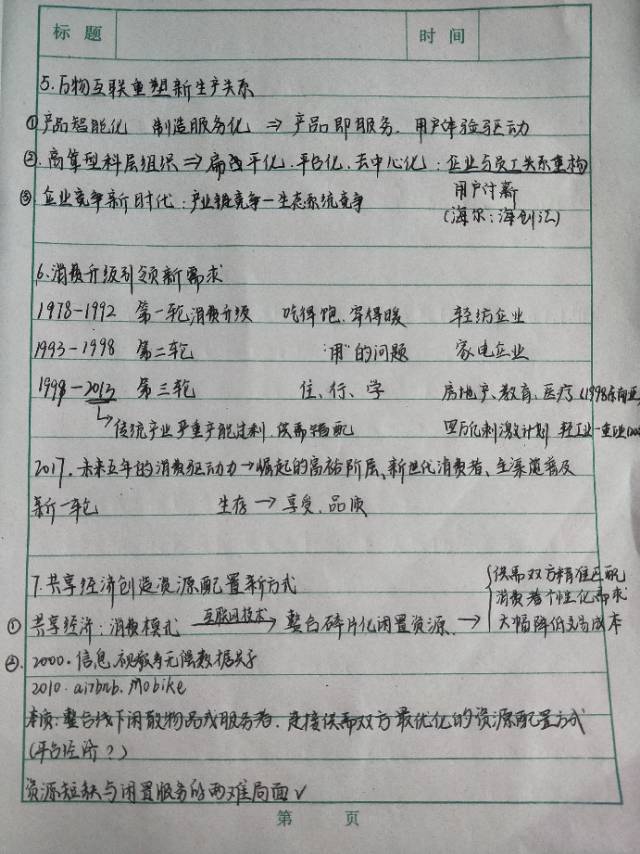 标题 时间
5.万物互联重塑新生产关系
① 产品智能化 制造服务化 ⇒ 产品即服务.用户体验驱动
②.高耸型科层组织⇒扁平化.平台化.去中心化:企业与员工关系重构
③ 企业竞争新时代:产业链竞争—生态系统竞争 用户付薪
(海尔:海创汇)
6.消费升级引领新需求
1978-1992 第一轮消费升级 吃得饱.穿得暖 轻纺企业
1993-1998 第二轮 "用"的问题 家电企业
1998-2013 第三轮 住、行、学 房地产、教育、医疗(1998东南亚
↳传统产业严重产能过剩.供需错配 四万亿刺激计划 轻工业—重
2017.未来五年的消费驱动力→崛起的富裕阶层、新世代消费者、全渠道普及
新一轮 生存→享受、品质
7.共享经济创造资源配置新方式
① 共享经济:消费模式 互联网技术→ 整合碎片化闲置资源.→ { 供需双方精准匹配
消费者个性化需求
大幅降低交易成本
②.2000.信息.视频等无偿数据共享
2010.airbnb.Mobike
本质:整合线下闲散物品或服务者.连接供需双方最优化的资源配置方式
(平台经济?)
资源短缺与闲置服务的两难局面✓
第 页